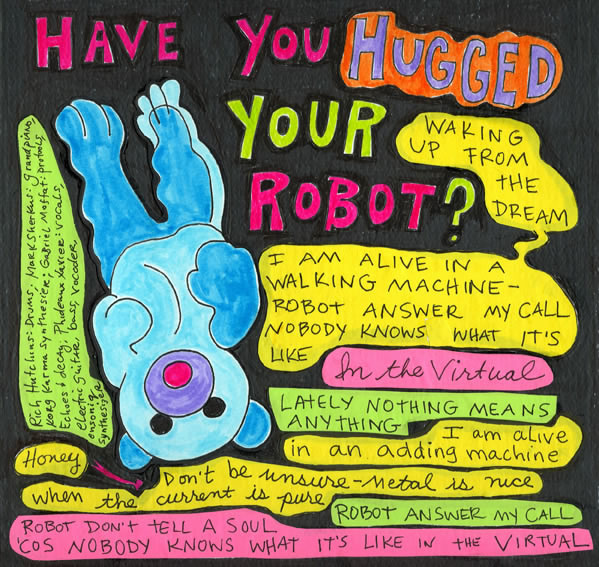 HAVE YOU HUGGED
YOUR
ROBOT?
WAKING
UP FROM
THE
DREAM
I AM ALIVE IN A
WALKING MACHINE-
ROBOT ANSWER MY CALL
NOBODY KNOWS WHAT IT'S
LIKE
In the Virtual
LATELY NOTHING MEANS
ANYTHING
I am alive
in an adding machine
Honey
Don't be unsure-metal is nice
when the current is pure
ROBOT ANSWER MY CALL
ROBOT DON'T TELL A SOUL
'COS NOBODY KNOWS WHAT IT'S LIKE IN the VIRTUAL
Rich Hutchins: Drums; Mark Sherkus: grand piano,
korg karma synthesizer; Gabriel Moffat: protools,
Echoes & decay; Phideaux Xavier: vocals,
electric guitar, bass, vocoder
ensoniq
synthesizer